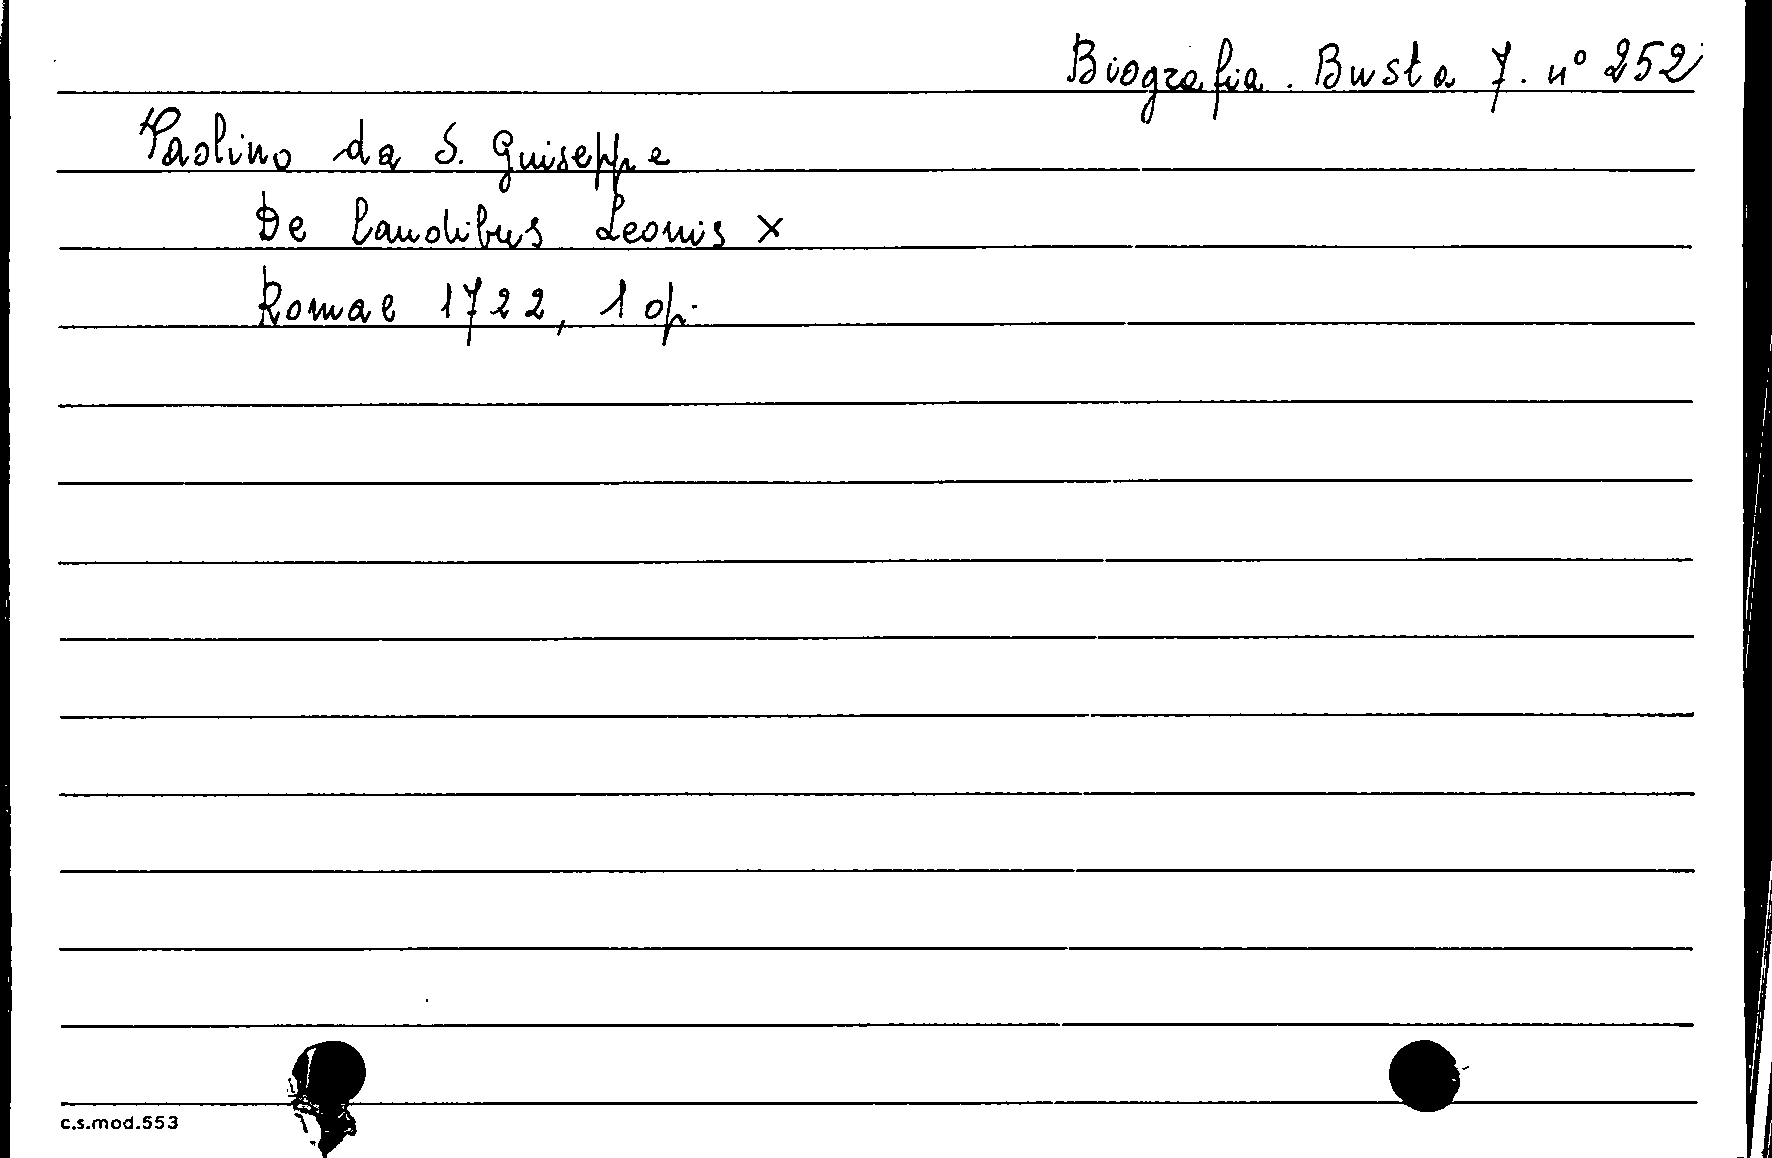 Biografia. Busta 7. n° 252
Paolino da S. Guiseppe
De laudibus Leonis X
Romae 1722, 1 op.
c.s.mod.553